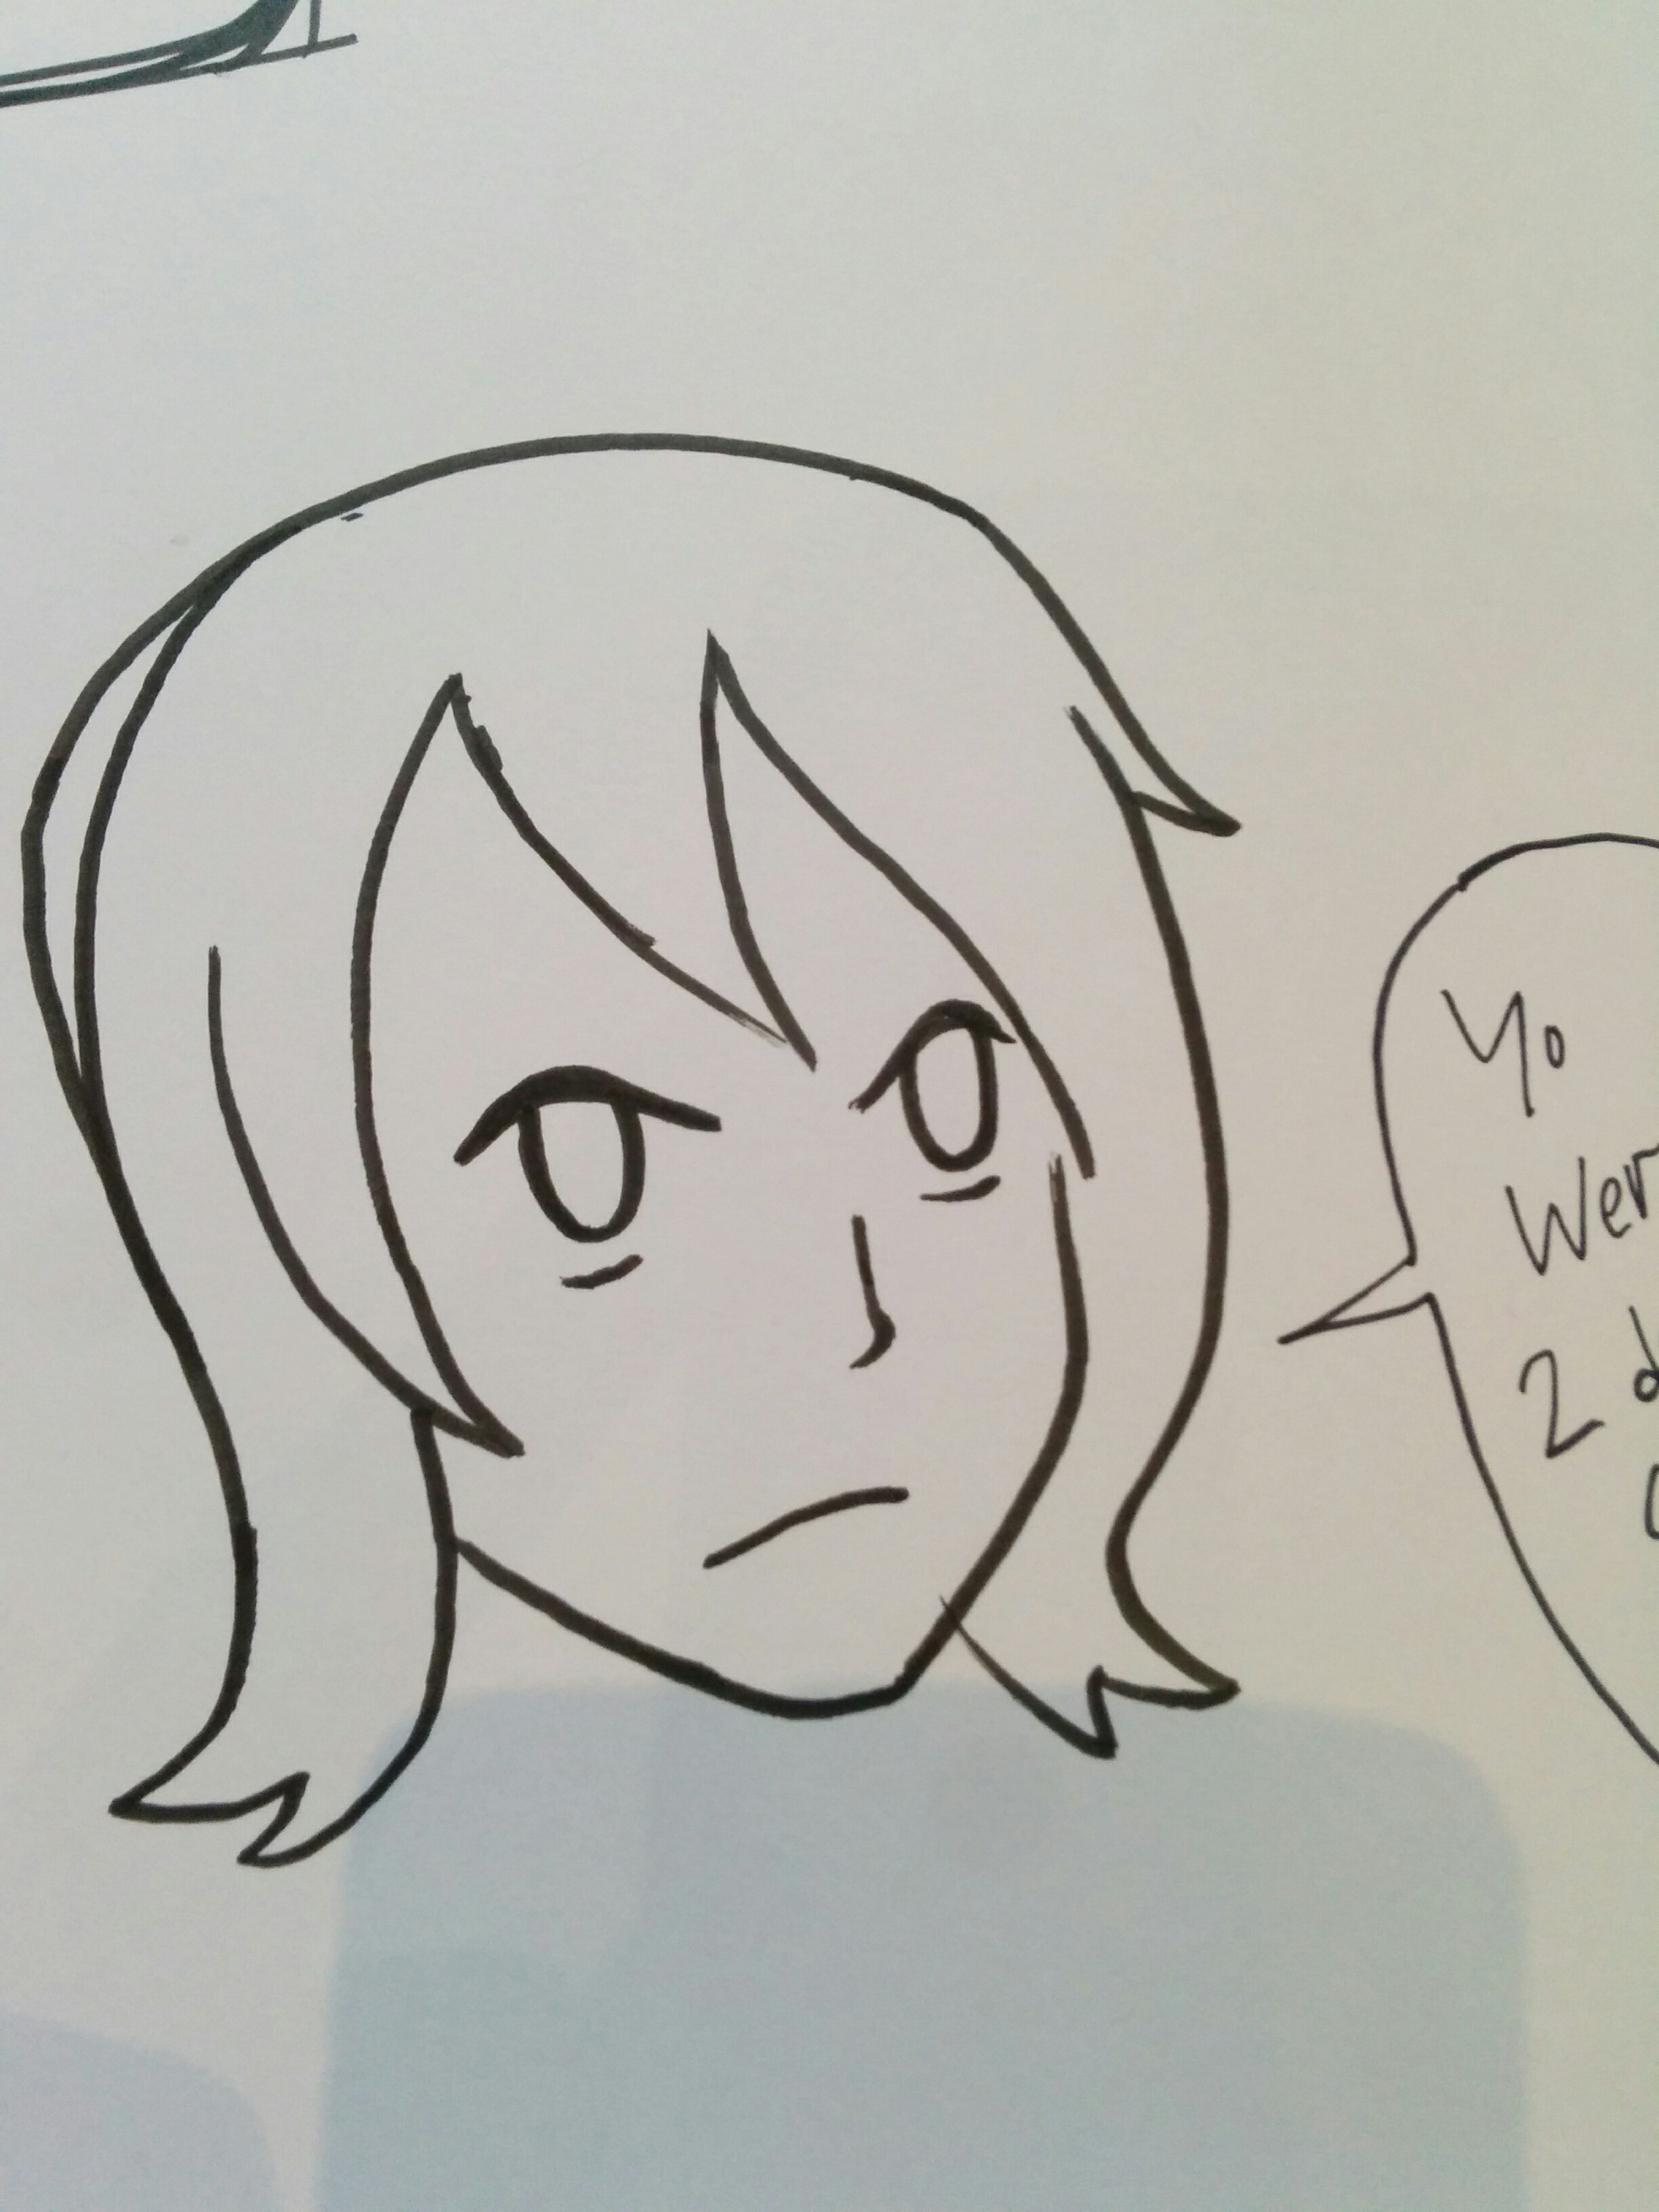 Yo
Wer
2 d